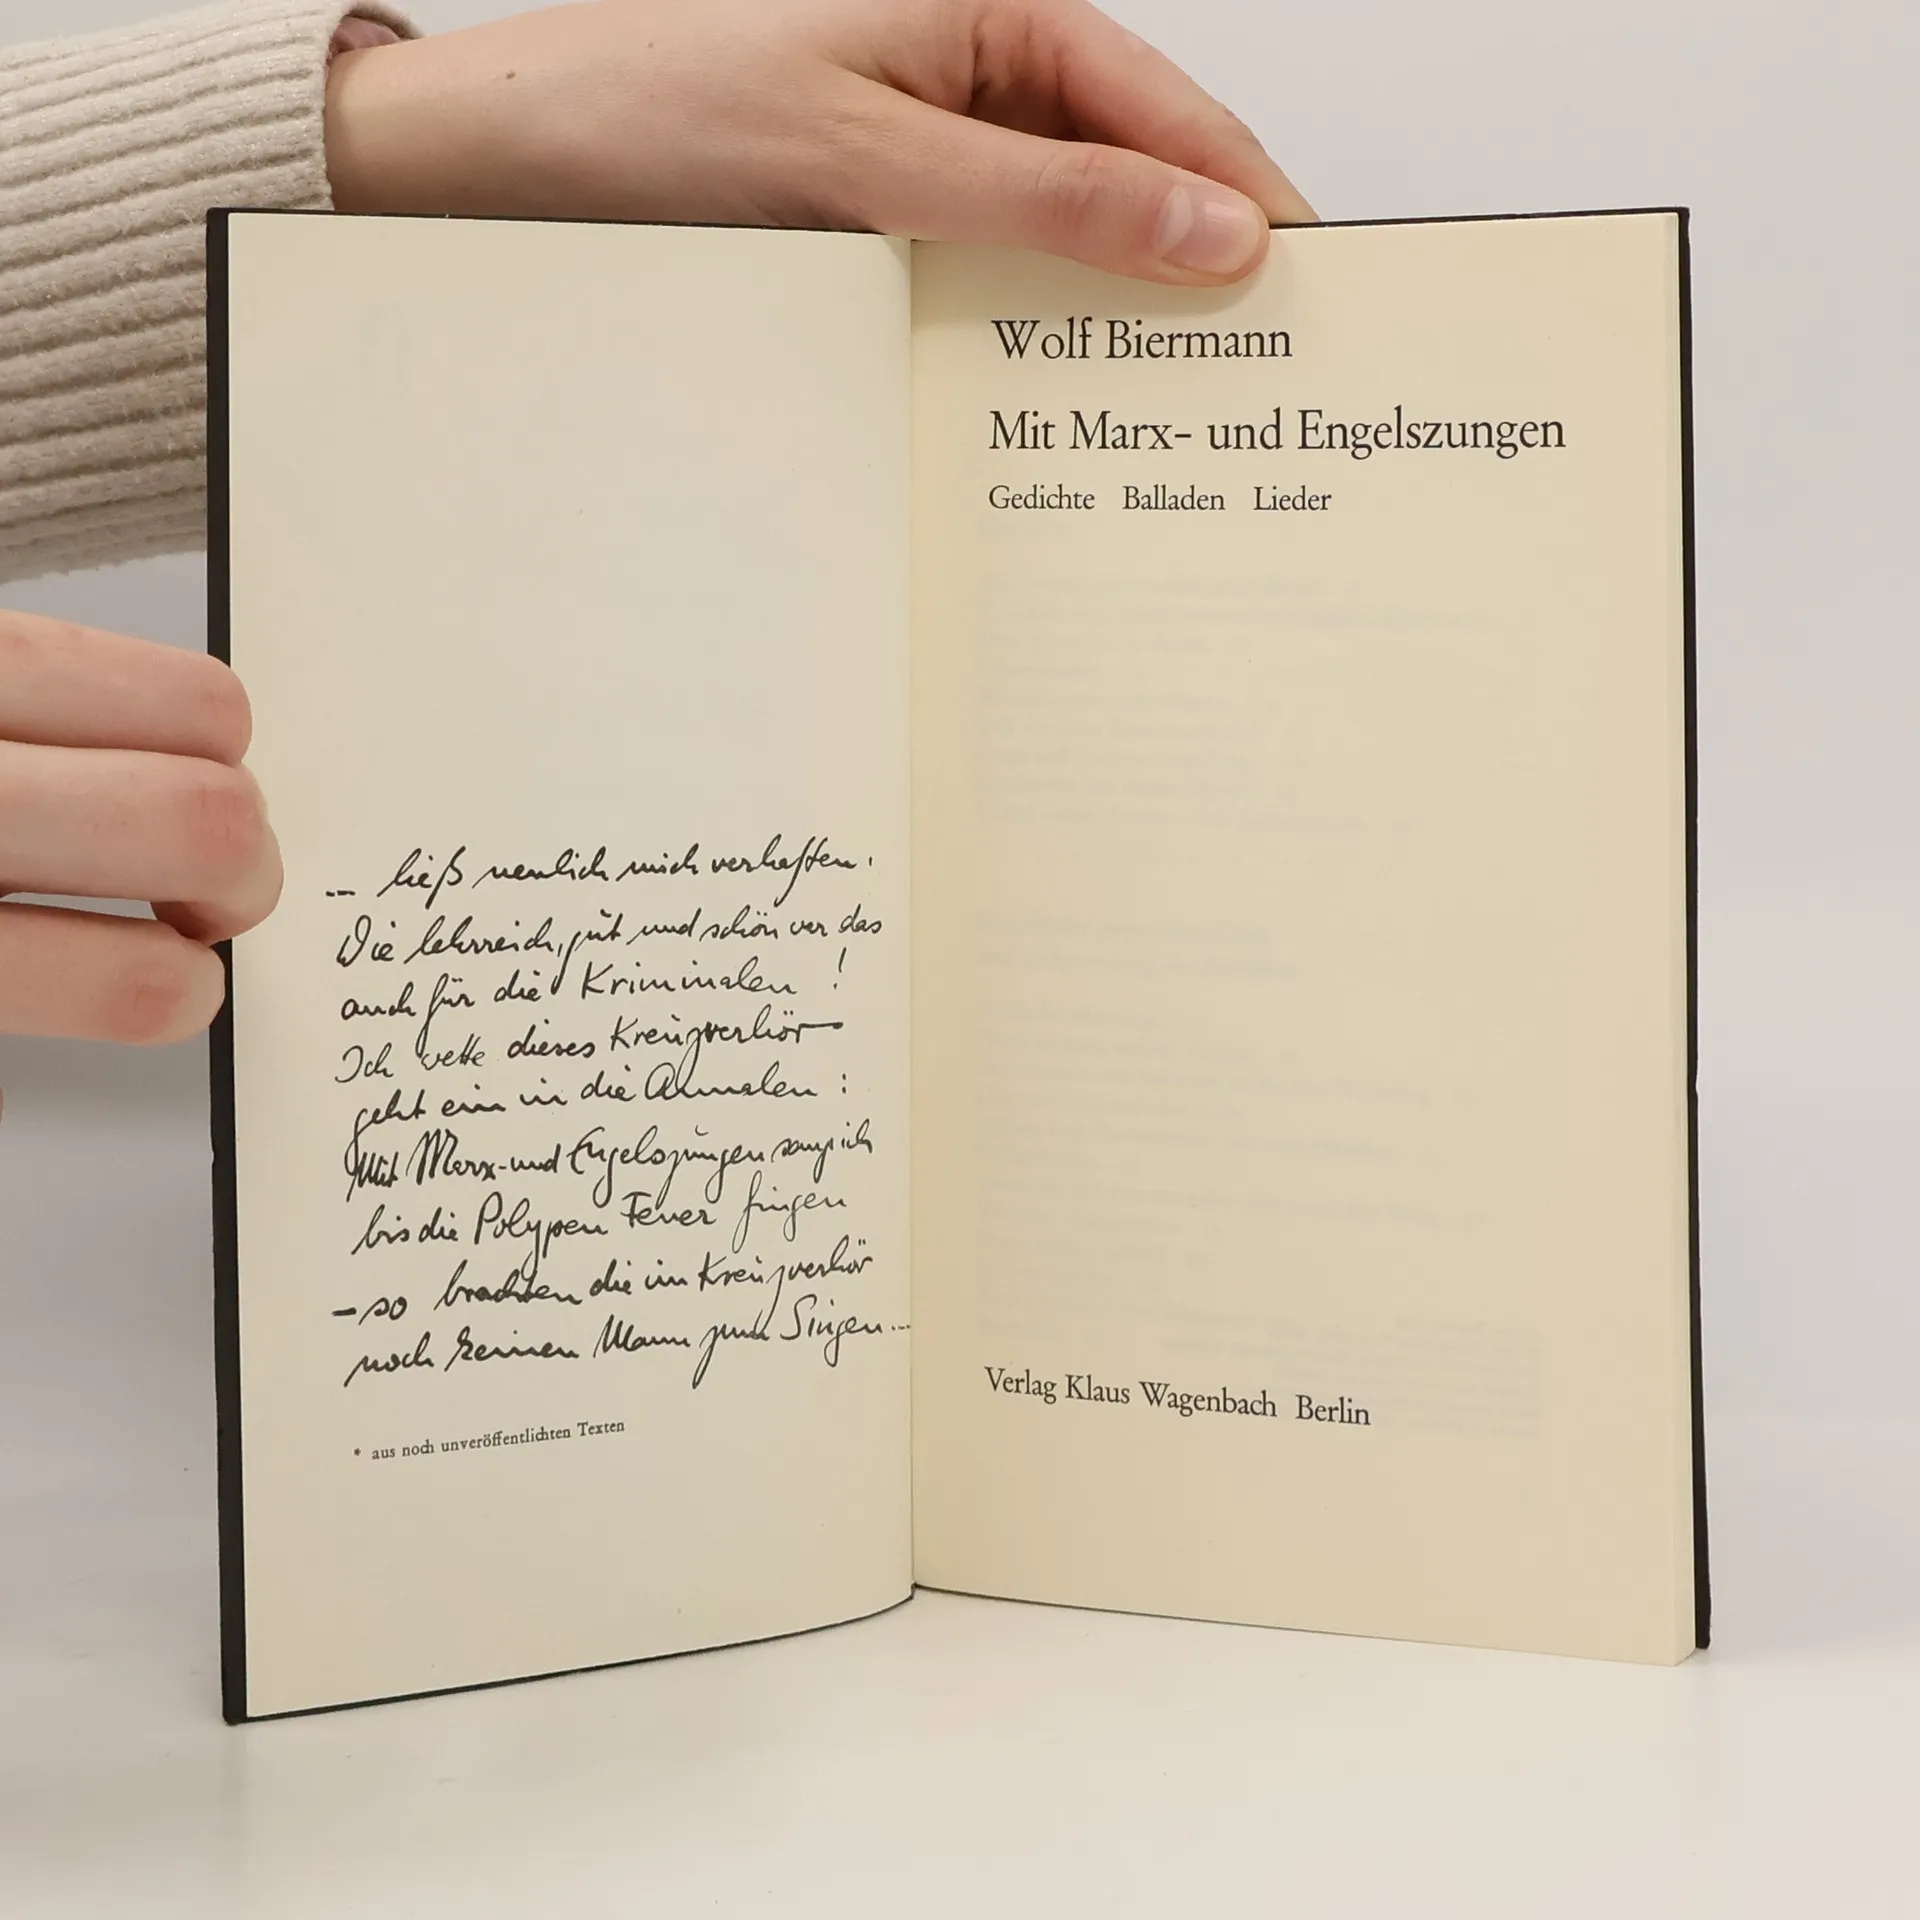 ... ließ neulich mich verhaften.
Wie lehrreich, gut und schön war das
auch für die Kriminalen!
Ich wette dieses Kreuzverhör
geht ein in die Annalen:
Mit Marx- und Engelszungen sang ich
bis die Polypen Feuer fingen
– so brachten die im Kreuzverhör
noch keinen Mann zum Singen...
* aus noch unveröffentlichten Texten
Wolf Biermann
Mit Marx- und Engelszungen
Gedichte Balladen Lieder
Verlag Klaus Wagenbach Berlin